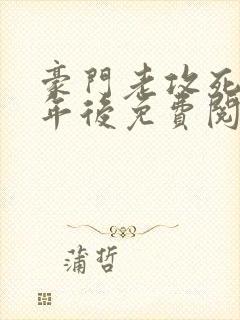 豪門老攻死
年後免費閱
蒲哲